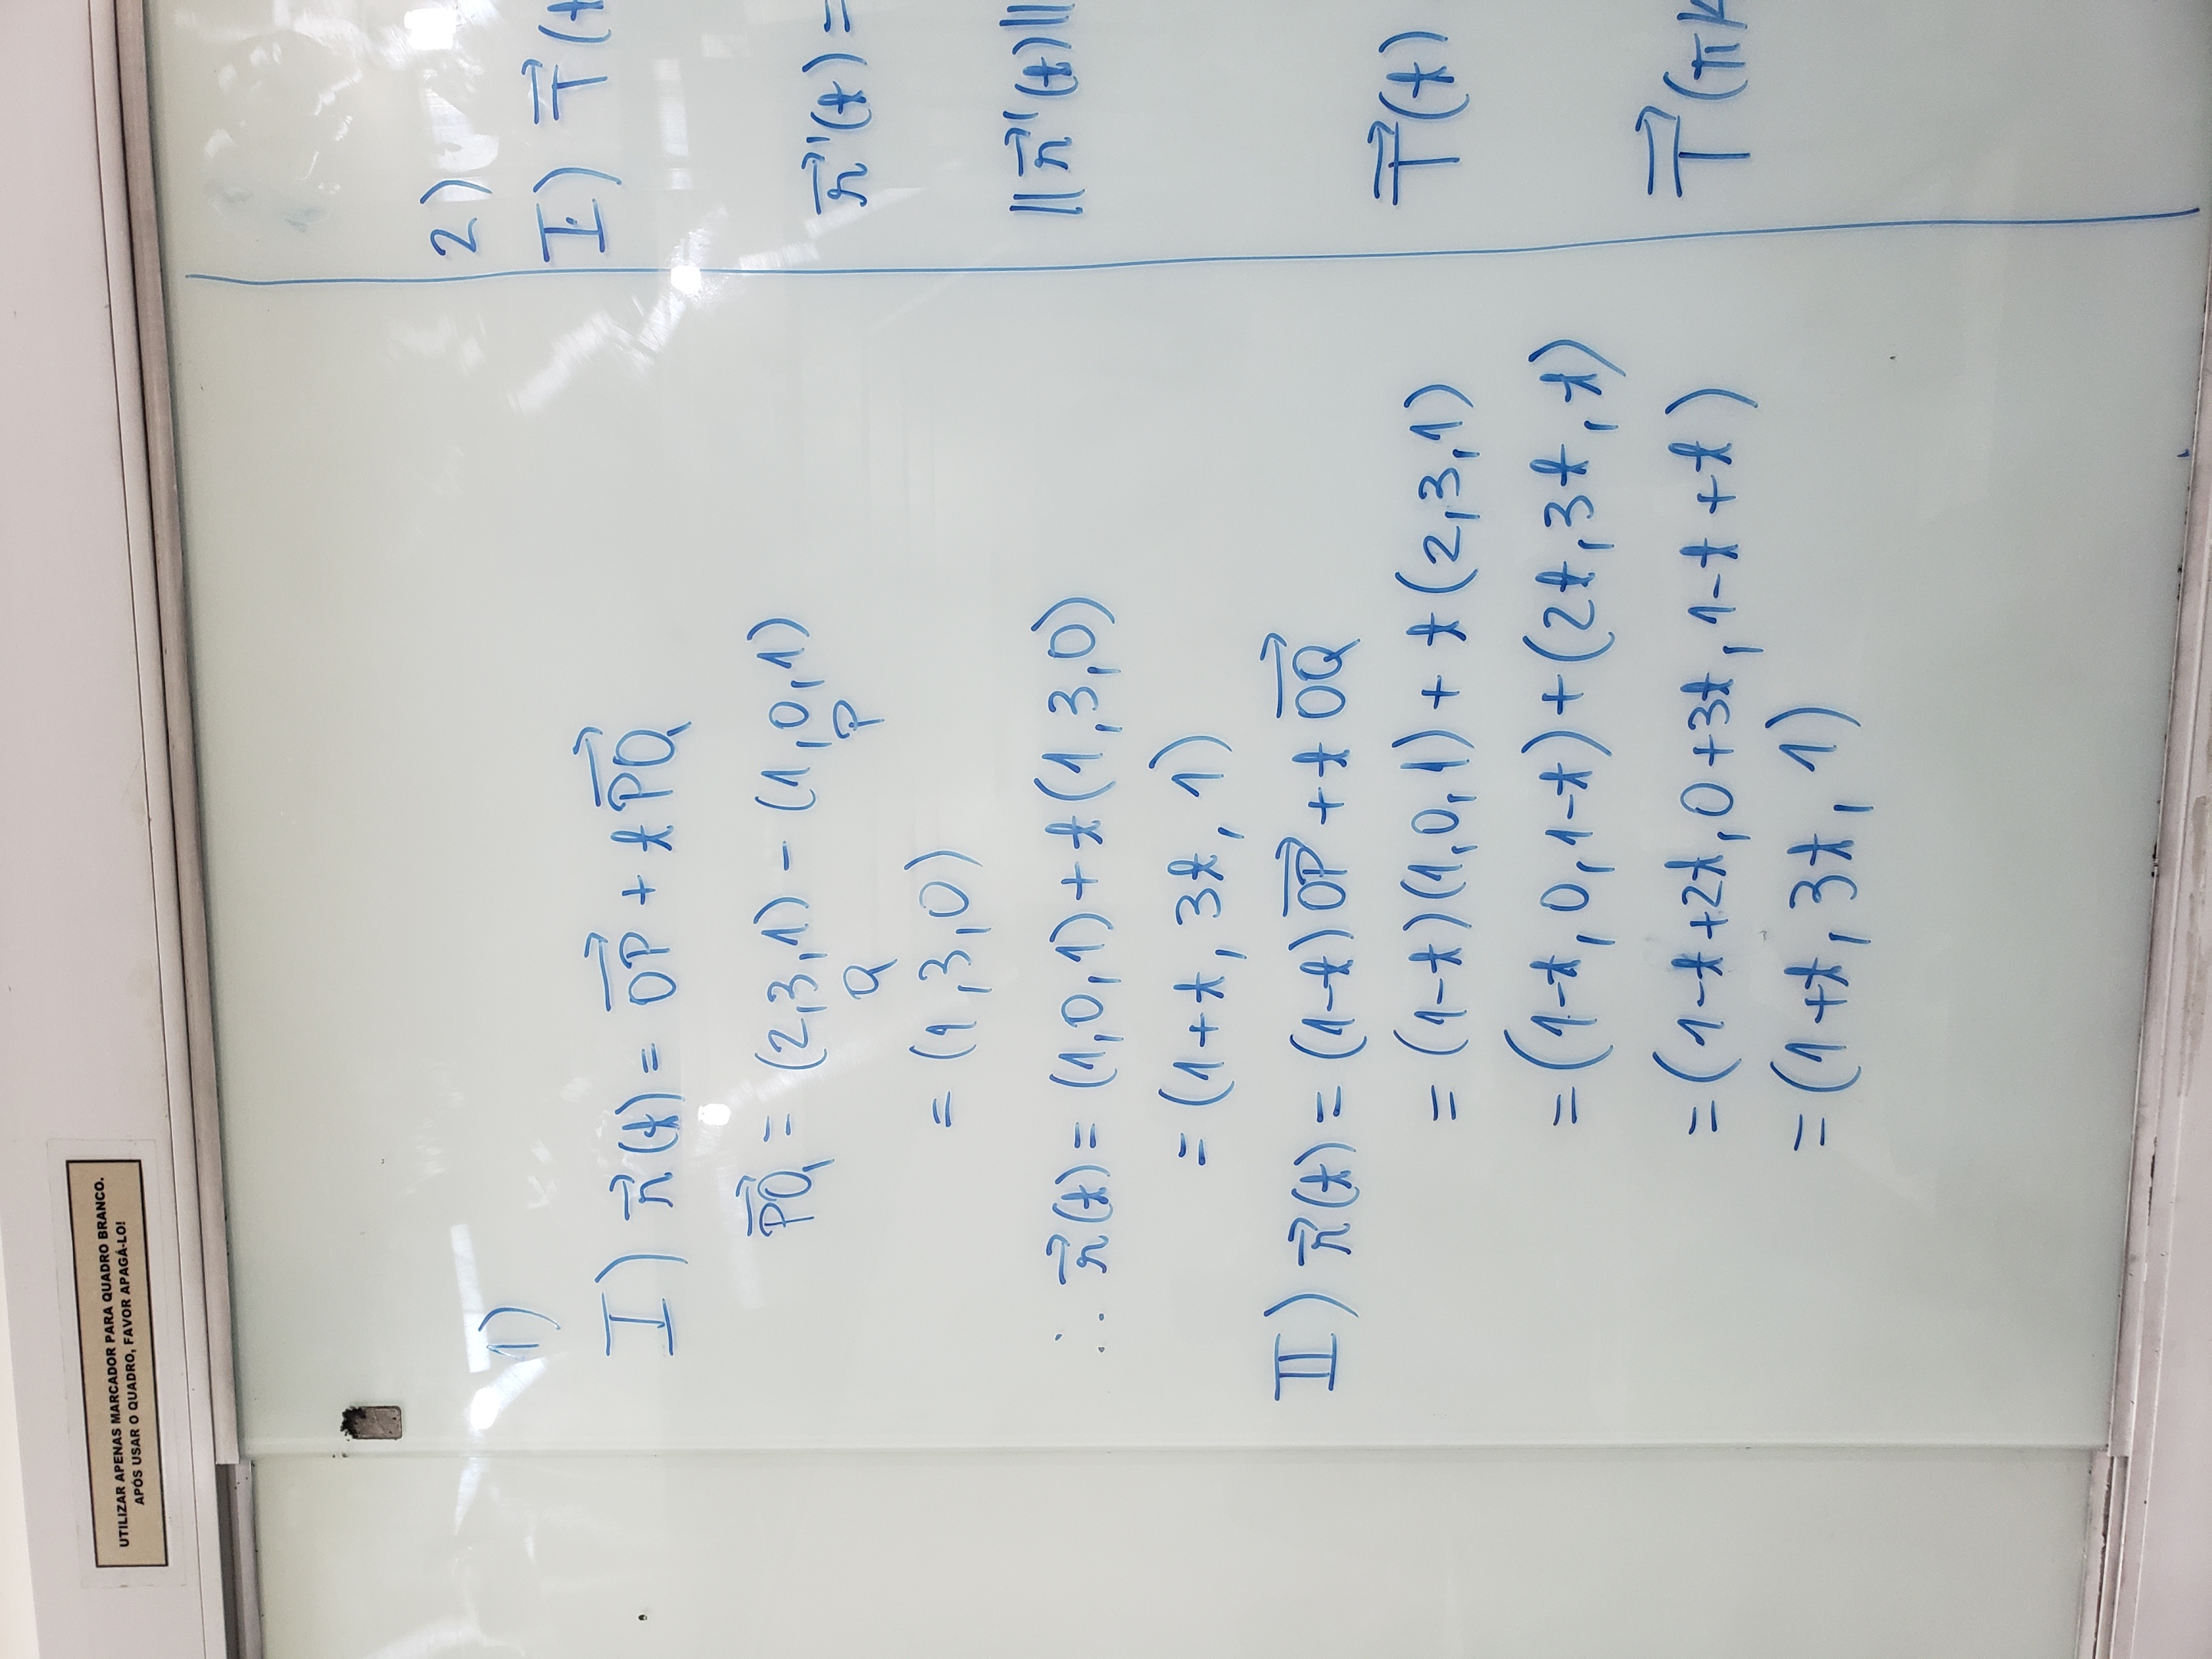 UTILIZAR APENAS MARCADOR PARA QUADRO BRANCO.
APÓS USAR O QUADRO, FAVOR APAGÁ-LO!
1)
I) r⃗(t) = OP⃗ + t PQ⃗
PQ⃗ = (2,3,1) - (1,0,1)
Q P
= (1,3,0)
∴ r⃗(t) = (1,0,1) + t(1,3,0)
= (1+t, 3t, 1)
II) r⃗(t) = (1-t) OP⃗ + t OQ⃗
= (1-t)(1,0,1) + t(2,3,1)
= (1-t, 0, 1-t) + (2t, 3t, t)
= (1-t+2t, 0+3t, 1-t+t)
= (1+t, 3t, 1)
2)
I) T⃗(t
r⃗'(t) =
||r⃗'(t)||
T⃗(t)
T⃗(π/